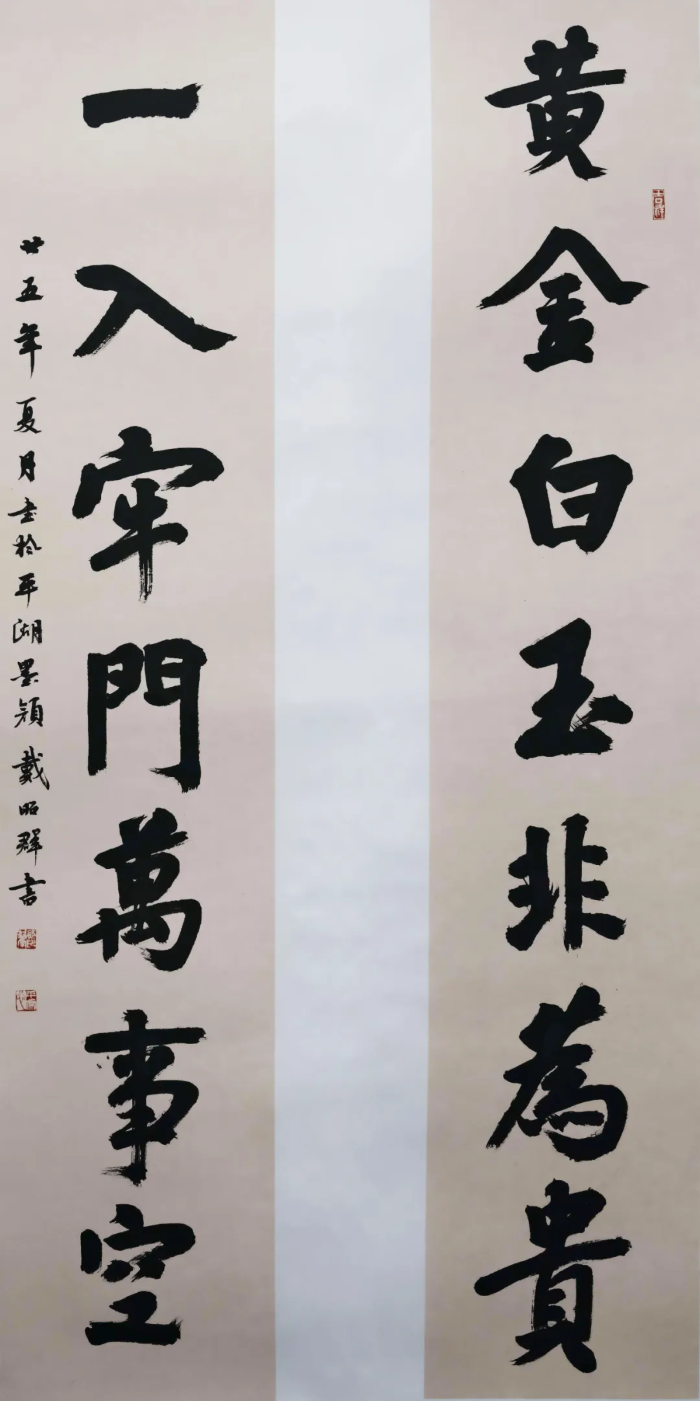 黄金白玉非為貴
一入牢門萬事空
廿五年夏月书於平湖墨颖戴昭群書